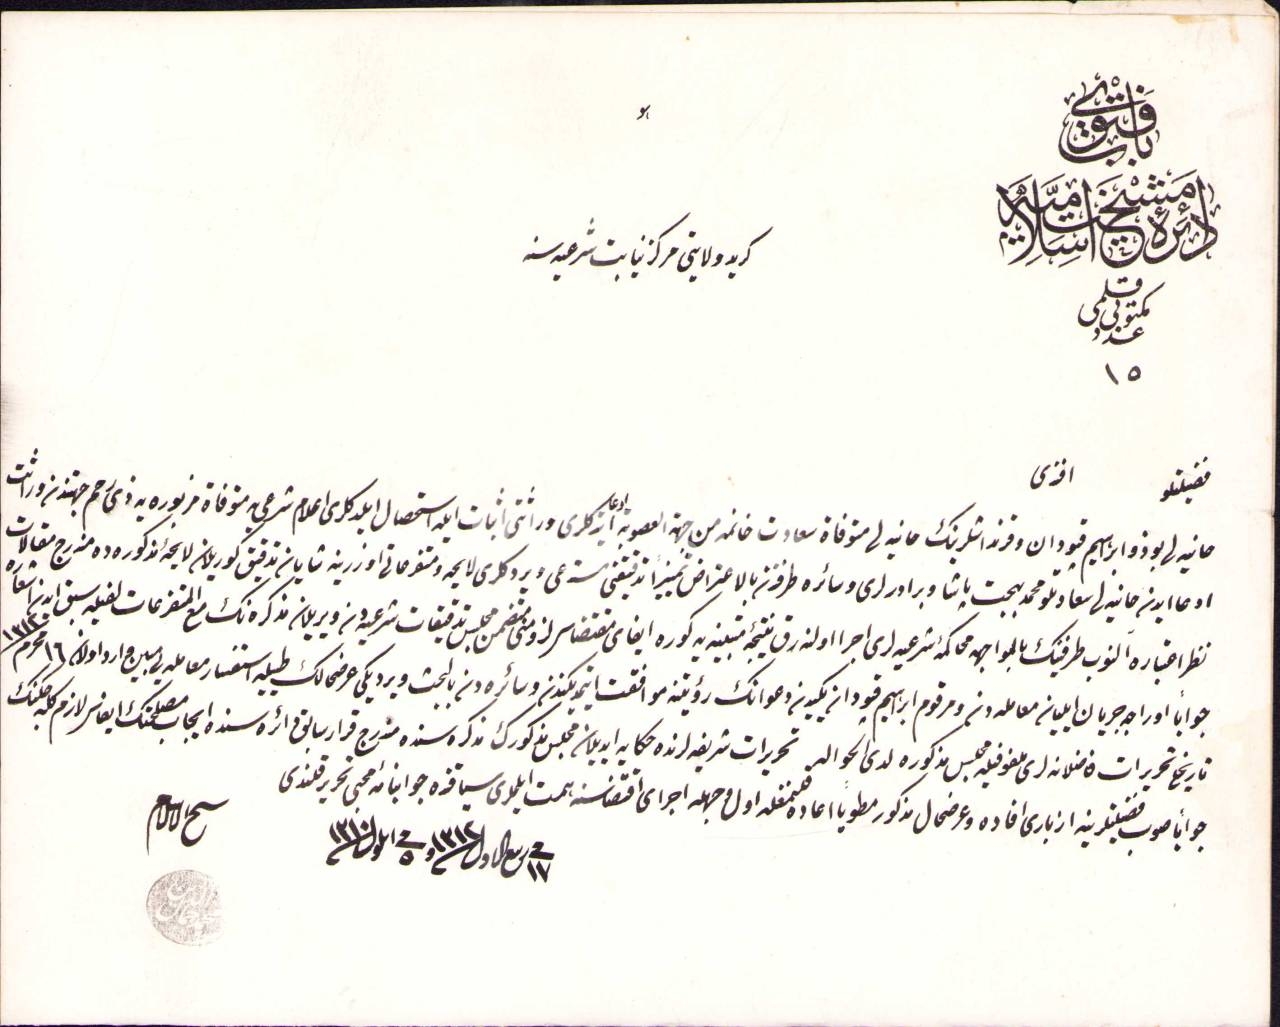 باب فتوی
دائرهٔ مشیخت اسلامیه
مكتوبی قلمی
عدد
١٥
كريد ولايتی مركز نيابت شرعيه سنه
فضيلتلو افندی
حانيه لی بودو ابراهيم قپودان وفرنداشلرينك حانيه لی متوفاة سعادت خانمه من جهة العصوبة ادعا ايتدكلری وراثتی اثبات ايله استحصال ايلدكلری اعلام شرعی يه متوفاة مزبوره يه ذی رحم جهتندن وراثت
ادعا ايدن حانيه لی سعادتلو محمد بهجت پاشا وبرادرلری وسائره طرفندن بالاعتراض تمييزاً تدقيقنی مستدعی ويرد كلری لايحه ومتفرعاتی اوزرينه شايان تدقيق كوريلان لايحهٔ مذكوره ده مندرج مقالات
نظر اعتباره آلنوب طرفينك بالمواجهه محاكمهٔ شرعيه لری اجرا اولنه رق نتيجهٔ متبينه يه كوره ايفای مقتضاسی لزومنی متضمن مجلس تدقيقات شرعيه دن ويريلان مذكره نك مع المتفرعات لفيله سبق ايدن اشعاره
جواباً اوراجه جريان ايليان معامله دن ومرقوم ابراهيم قپودان يكيدن دعوانك رؤيتنه موافقت ايتمديكندن وسائره دن بالبحث ويرديكی عرضحالك طييله استفسار معامله يی مبين وارد اولان ١٦ محرم ١٣١٢
تاريخلی تحريرات فاضلانه لری ملفوفيله مجلس مذكوره لدی الحواله تحريرات شريفه لرنده حكايه ايديلان مجلس مذكورك مذكره سنده مندرج قرار سابق دائره سنده ايجاب مصلحتك ايفاسی لازم كله جكنك
جواباً صوب فضيلتلرينه ازباری افاده وعرضحال مذكور مطوياً اعاده قلنمغله اول وجهله اجرای اقتضاسنه همت ايلملری سياقنده جوابنامهٔ محبی تحرير قلندی
فی ١٧ ربيع الاول ١٣١٢ وفی ٥ ايلول ١٣١٠
شيخ الاسلام